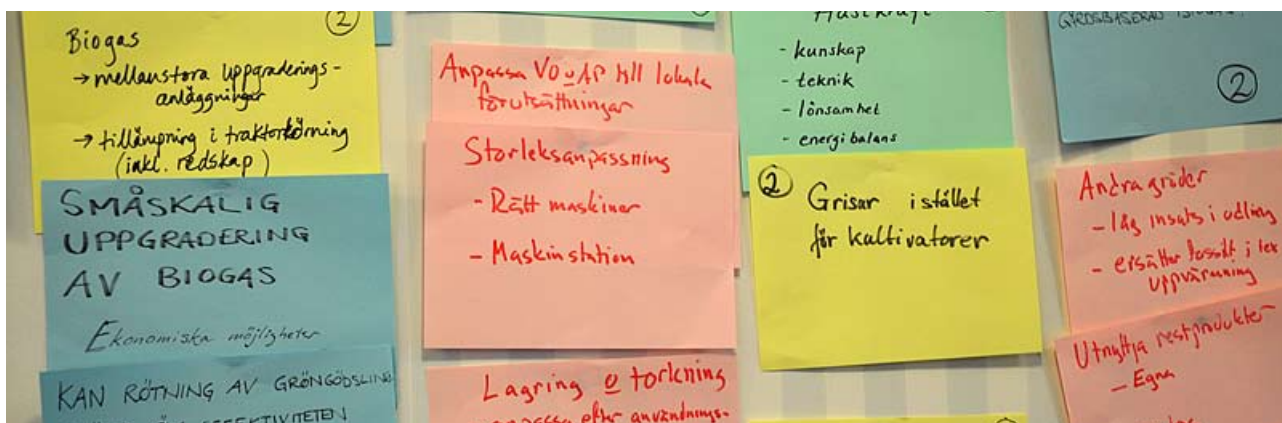 2
Biogas
→ mellanstora uppgraderings-
anläggningar
→ tillämpning i traktorkörning
(inkl. redskap)
SMÅSKALIG
UPPGRADERING
AV BIOGAS
Ekonomiska möjligheter
KAN RÖTNING AV GRÖNGÖDSLING
Anpassa VO o AP till lokala
förutsättningar
Storleksanpassning
- Rätt maskiner
- Maskinstation
Lagring o torkning
anpassa efter användnings-
Hästkraft
- kunskap
- teknik
- lönsamhet
- energibalans
2
Grisar istället
för kultivatorer
2
Andra grödor
- låg insats i odling
- ersätter fossilt i tex
uppvärmning
Utnyttja restprodukter
- Egna